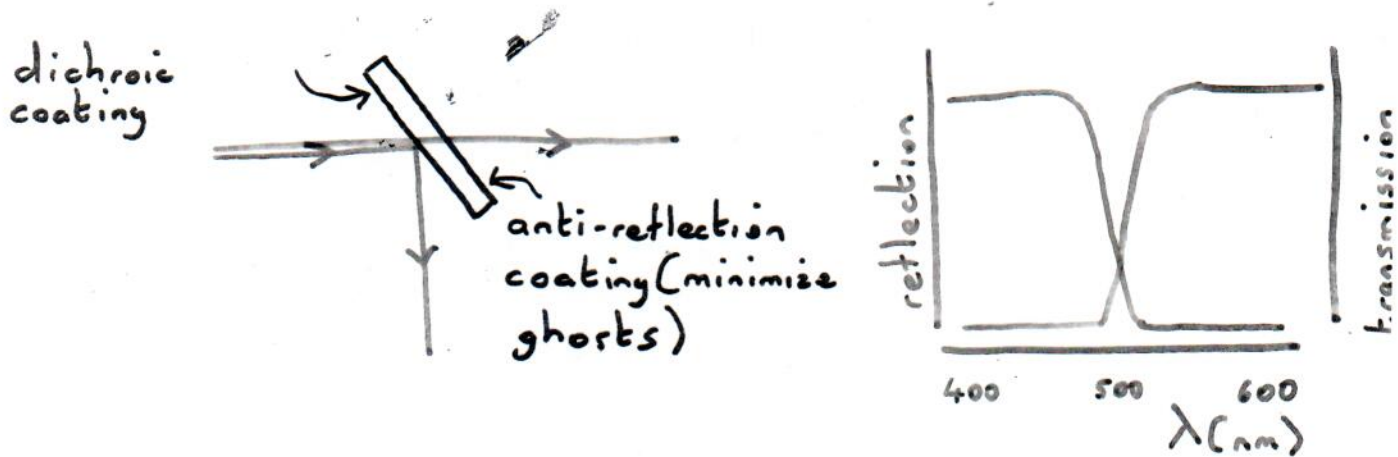 dichroic
coating
anti-reflection
coating (minimize
ghosts)
reflection
transmission
400 500 600
λ(nm)